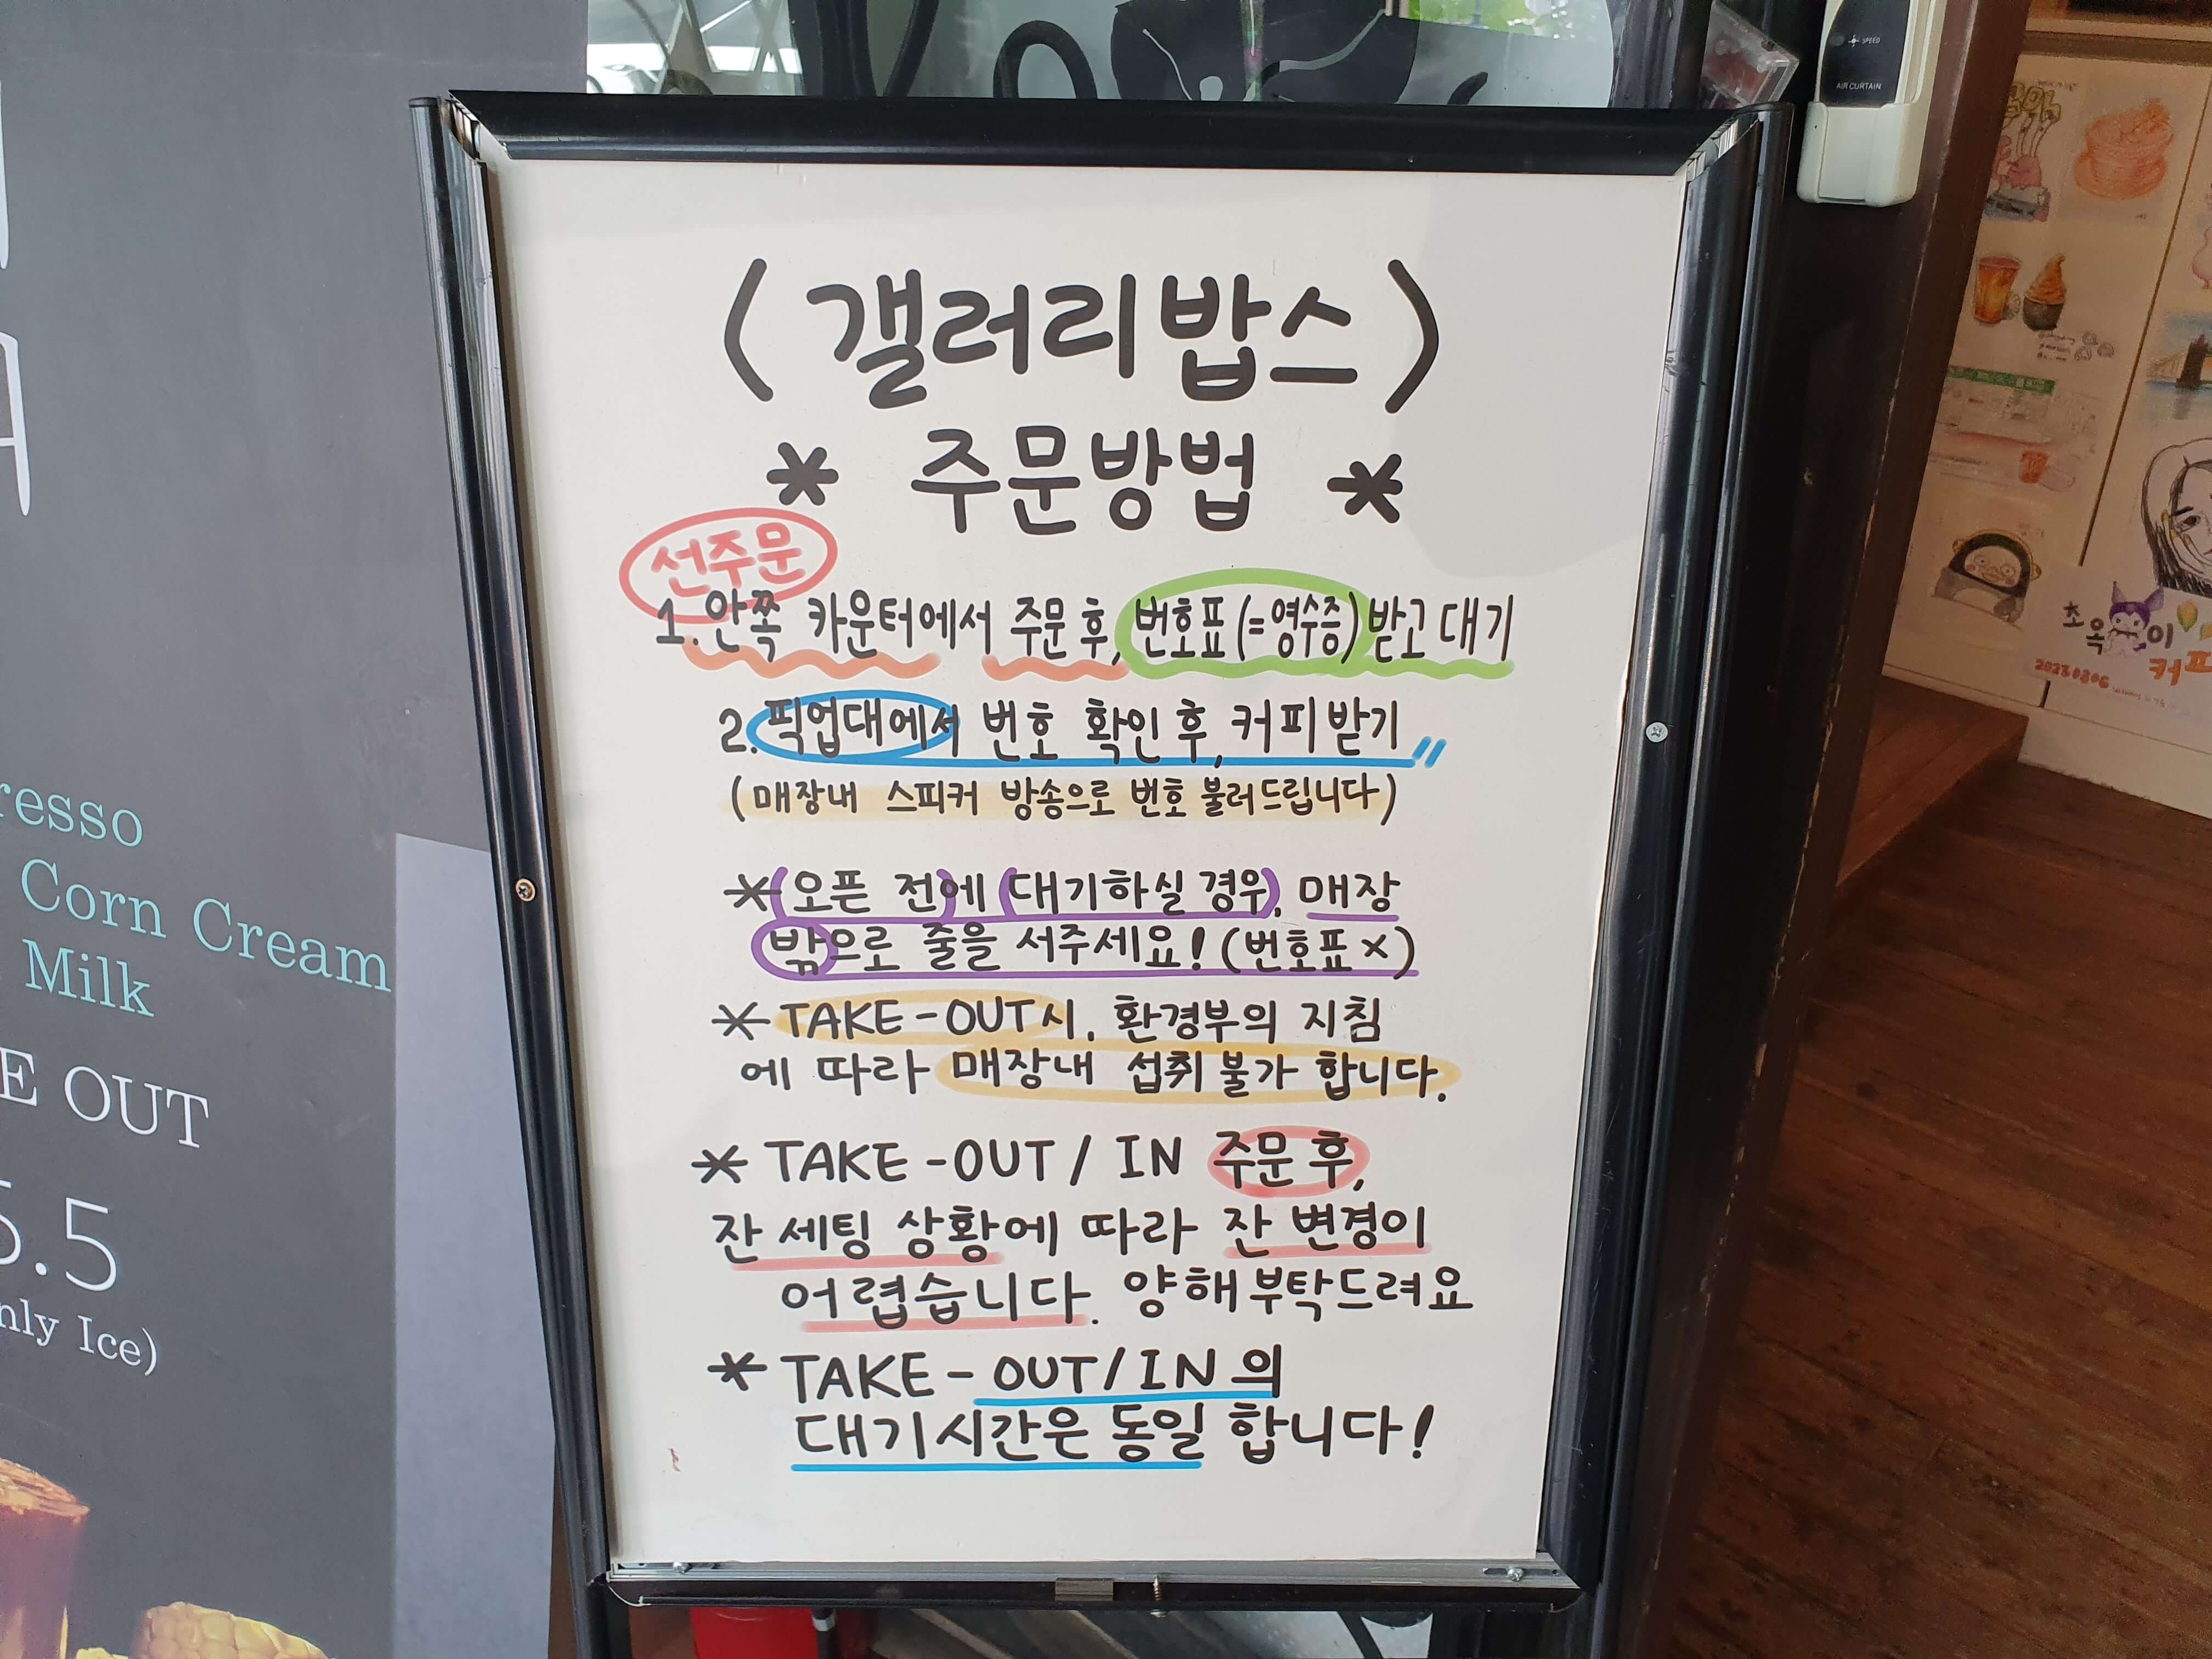 resso
Corn Cream
Milk
E OUT
5.5
nly Ice)
〈갤러리밥스〉
* 주문방법 *
선주문
1. 안쪽 카운터에서 주문 후, 번호표(=영수증) 받고 대기
2. 픽업대에서 번호 확인 후, 커피 받기
(매장내 스피커 방송으로 번호 불러드립니다)
*(오픈 전)에 (대기하실 경우), 매장
밖으로 줄을 서주세요! (번호표 ×)
* TAKE-OUT시, 환경부의 지침
에 따라 매장내 섭취 불가 합니다.
* TAKE-OUT / IN 주문 후,
잔 세팅 상황에 따라 잔 변경이
어렵습니다. 양해부탁드려요
* TAKE-OUT/IN의
대기시간은 동일 합니다!
SPEED
AIR CURTAIN
초옥이
커피
20230806